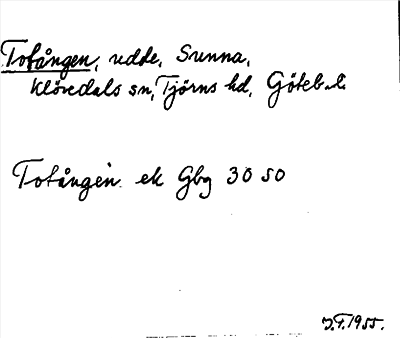 Tofången, udde, Sunna,
Klövedals sn, Tjörns hd, Göteb. l.
Tofången ek Gbg 30 SO
J.F. 1955.